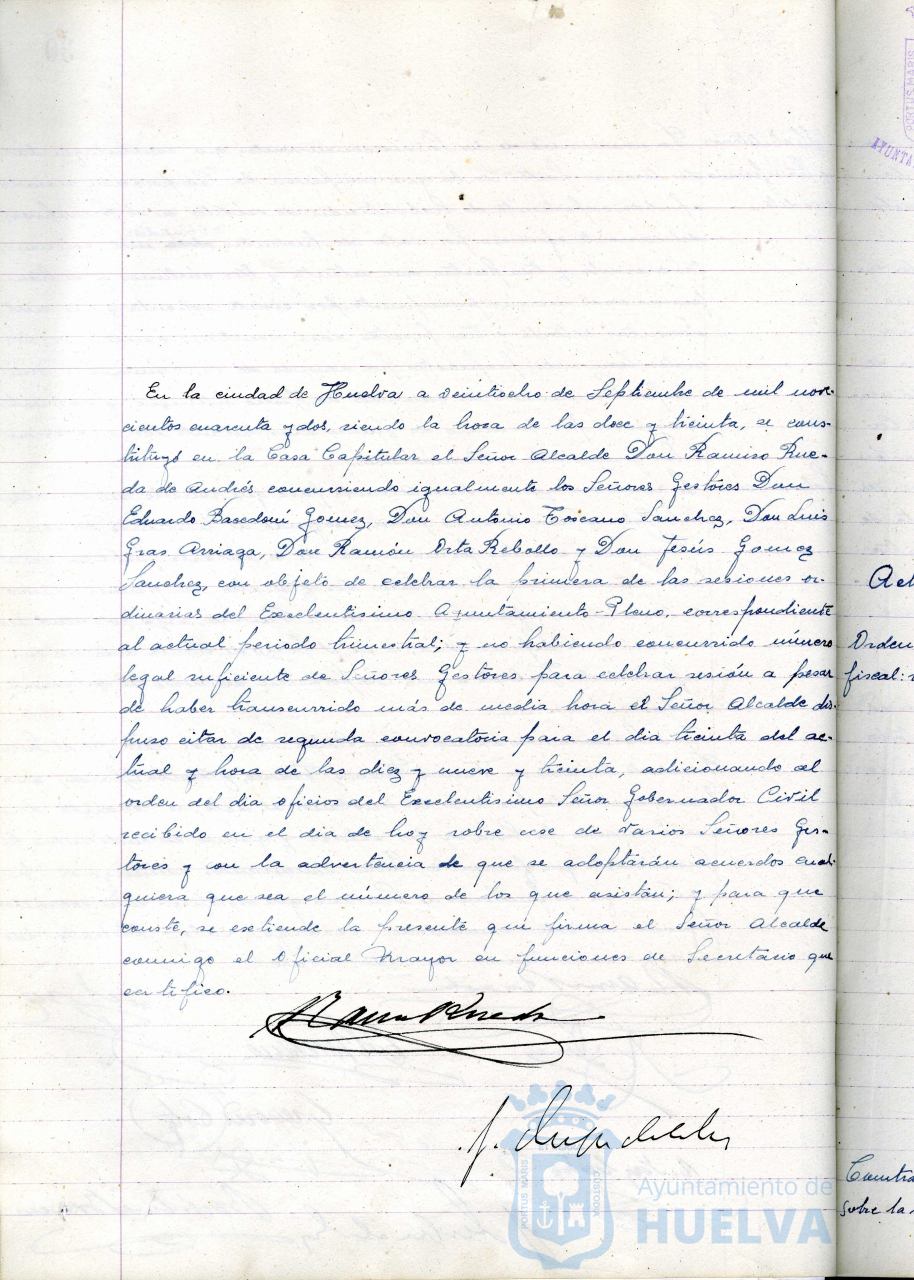 En la ciudad de Huelva a veintiocho de Septiembre de mil nove-
cientos cuarenta y dos, siendo la hora de las doce y treinta, se cons-
tituyó en la Casa Capitular el Señor Alcalde Don Ramiro Rue-
da de Andrés concurriendo igualmente los Señores Gestores Don
Eduardo Gomez, Don Antonio Toscano Sanchez, Don Luis
Gras Arriaza, Don Ramón Orta Rebollo y Don Jesús Gomez
Sanchez, con objeto de celebrar la primera de las sesiones or-
dinarias del Excelentisimo Ayuntamiento-Pleno, correspondiente
al actual periodo trimestral; y no habiendo concurrido número
legal suficiente de Señores Gestores para celebrar sesión a pesar
de haber transcurrido más de media hora el Señor Alcalde dis-
puso citar de segunda convocatoria para el dia treinta del ac-
tual y hora de las diez y nueve y treinta, adicionando al
orden del dia oficios del Excelentisimo Señor Gobernador Civil
recibido en el dia de hoy sobre cese de varios Señores Ges-
tores y con la advertencia de que se adoptarán acuerdos cual-
quiera que sea el número de los que asistan; y para que
conste, se extiende la presente que firma el Señor Alcalde
conmigo el Oficial Mayor en funciones de Secretario que
certifico.
Ramiro Rueda
PORTUS MARIS CUSTODIA
Ayuntamiento de
HUELVA
PORTUS MARIS
AYUNTA
Act
Orden
fiscal:
Contra
sobre la